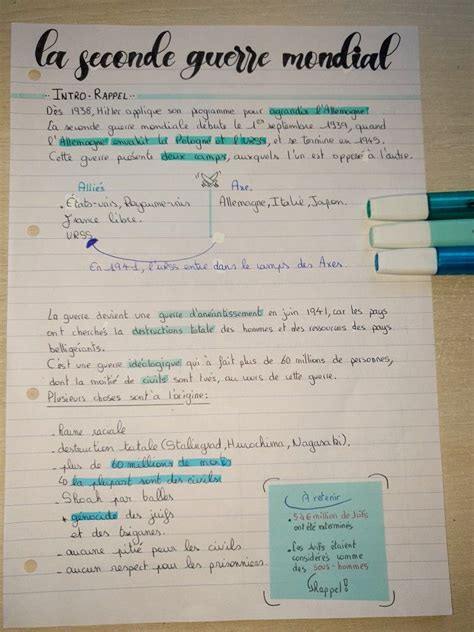 la seconde guerre mondial
INTRO-RAPPEL
Dès 1938, Hitler applique son programme pour agrandir l'Allemagne.
La seconde guerre mondiale débute le 1er septembre 1939, quand
l'Allemagne envahit la Pologne et l'URSS, et se termine en 1945.
Cette guerre présente deux camps, auxquels l'un est opposé à l'autre.
Alliés
Axe.
États-unis, Royaume-unis
Allemagne, Italie, Japon.
France libre.
URSS
En 1941, l'urss entre dans le camps des Axes.
La guerre devient une guerre d'anéantissement en juin 1941, car les pays
ont cherchés la destructions totale des hommes et des ressources des pays
belligérants.
C'est une guerre idéologique qui à fait plus de 60 millions de personnes,
dont la moitié de civils sont tués, au cours de cette guerre.
Plusieurs choses sont à l'origine:
- Haine raciale
- destruction totale (Stalingrad, Hiroshima, Nagasaki).
- plus de 60 millions de morts
↳ la plupart sont des civils
- Shoah par balles
+ génocide des juifs
et des tziganes.
- aucune pitié pour les civils
- aucun respect pour les prisonniers.
A retenir
- 5 à 6 million de Juifs
ont été exterminés
- Les Juifs étaient
considérés comme
des sous-hommes
Rappel!